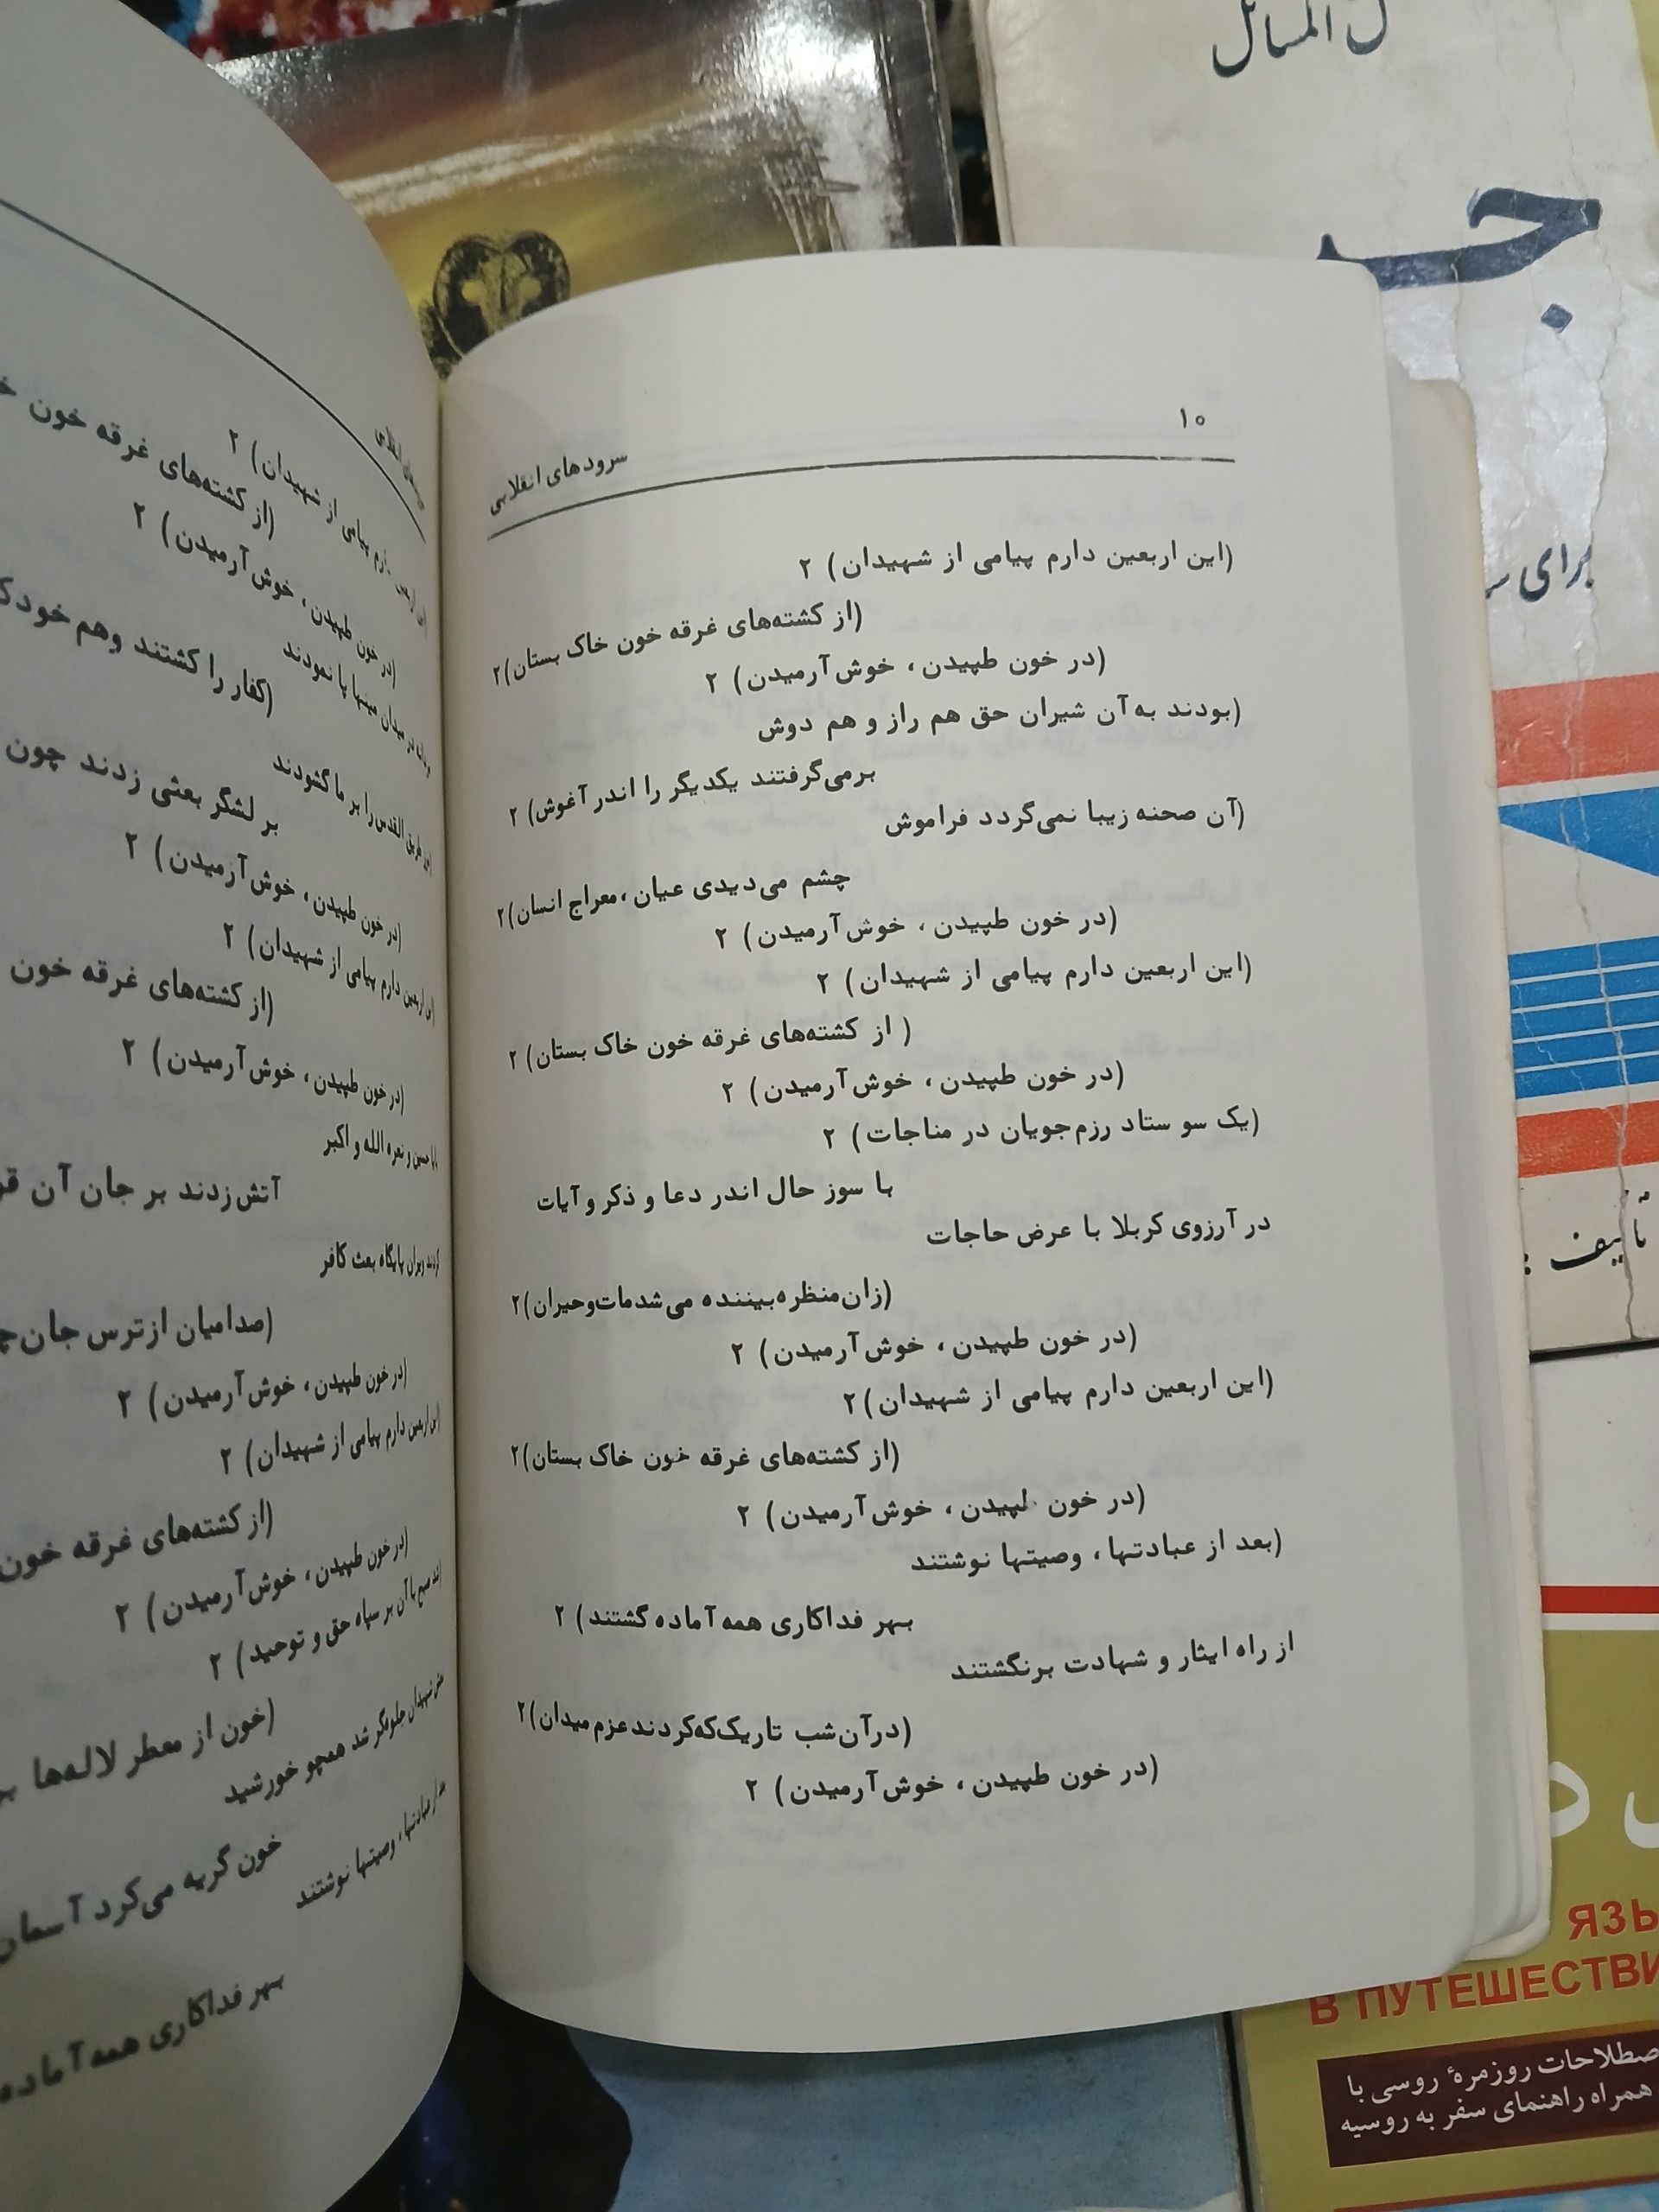 ۱۰
سرودهای انقلابی
(این اربعین دارم پیامی از شهیدان) ۲
(از کشته‌های غرقه خون خاک بستان)۲
(در خون طپیدن، خوش آرمیدن) ۲
(بودند به آن شیران حق هم راز و هم دوش
برمی‌گرفتند یکدیگر را اندر آغوش) ۲
(آن صحنه زیبا نمی‌گردد فراموش
چشم می‌دیدی عیان، معراج انسان)۲
(در خون طپیدن، خوش آرمیدن) ۲
(این اربعین دارم پیامی از شهیدان) ۲
( از کشته‌های غرقه خون خاک بستان) ۲
(در خون طپیدن، خوش آرمیدن) ۲
(یک سو ستاد رزم‌جویان در مناجات) ۲
با سوز حال اندر دعا و ذکر و آیات
در آرزوی کربلا با عرض حاجات
(زان منظره بیننده می‌شد مات و حیران)۲
(در خون طپیدن، خوش آرمیدن) ۲
(این اربعین دارم پیامی از شهیدان)۲
(از کشته‌های غرقه خون خاک بستان)۲
(در خون طپیدن، خوش آرمیدن) ۲
(بعد از عبادتها، وصیتها نوشتند
بهر فداکاری همه آماده گشتند) ۲
از راه ایثار و شهادت برنگشتند
(در آن شب تاریک که کردند عزم میدان)۲
(در خون طپیدن، خوش آرمیدن) ۲
دارم پیامی از شهیدان) ۲
(از کشته‌های غرقه خون
(در خون طپیدن، خوش آرمیدن) ۲
میدان مینها پا نمودند
(کفار را کشتند وهم خود
طریق القدس را بر ما گشودند
بر لشگر بعثی زدند چون
(در خون طپیدن، خوش آرمیدن) ۲
این اربعین دارم پیامی از شهیدان) ۲
(از کشته‌های غرقه خون
(در خون طپیدن، خوش آرمیدن) ۲
حسین و نعره الله و اکبر
آتش زدند بر جان آن
کردند ویران پایگاه بعث کافر
(صدامیان از ترس جان
(در خون طپیدن، خوش آرمیدن) ۲
این اربعین دارم پیامی از شهیدان) ۲
(از کشته‌های غرقه خون
(در خون طپیدن، خوش آرمیدن) ۲
آن بر سپاه حق و توحید) ۲
(خون از معطر لاله‌ها
شهیدان جلوه‌گر شد همچو خورشید
خون گریه می‌کرد آسمان
عبادتها، وصیتها نوشتند
بهر فداکاری همه آماده
المسائل
برای
تألیف
ЯЗЫ
В ПУТЕШЕСТВИ
اصطلاحات روزمرهٔ روسی با
همراه راهنمای سفر به روسیه